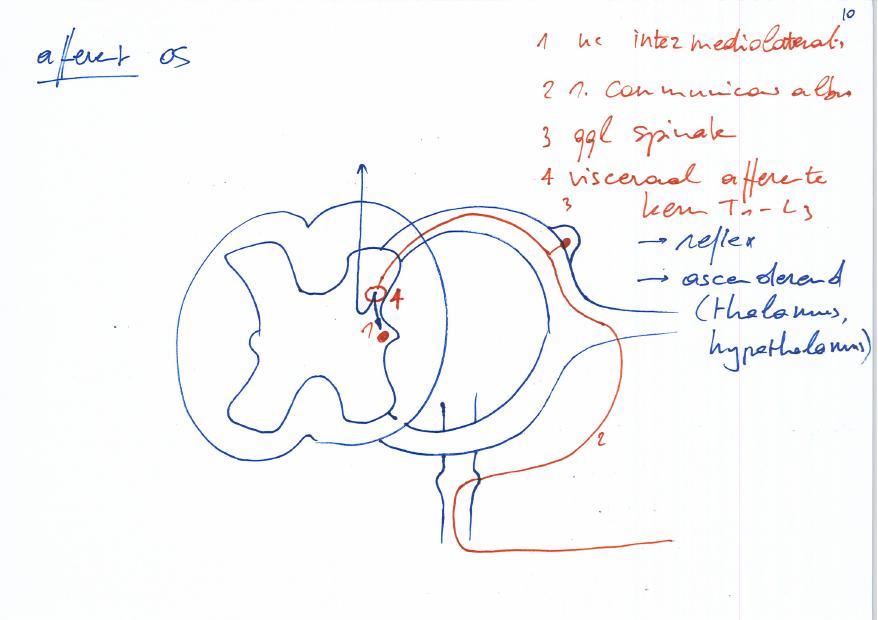 10
afferent OS
1 nc intermediolateralis
2 r. communicans albus
3 ggl spinale
4 visceraal afferente
kern T1-L3
→ reflex
→ ascenderend
(thalamus,
hypothalamus)
3
4
1
2